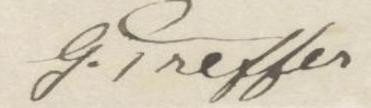 G. Treffer